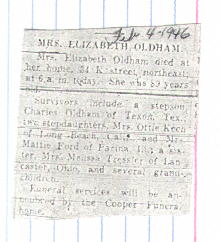 Feb. 4-1946
MRS. ELIZABETH OLDHAM.
Mrs. Elizabeth Oldham died at
her home, 34 K street, northeast;
at 6 a. m. today. She was 89 years
old.
Survivors include a stepson
Charles Oldham of Texon, Tex.;
two stepdaughters, Mrs. Ottie Kech
of Long Beach, Calif. and Mrs.
Mattie Ford of Farina, Ill.; a sis-
ter, Mrs. Melissa Tressler of Lan
caster, Ohio, and several grand-
children.
Funeral services will be an-
nounced by the Cooper Funeral
home.